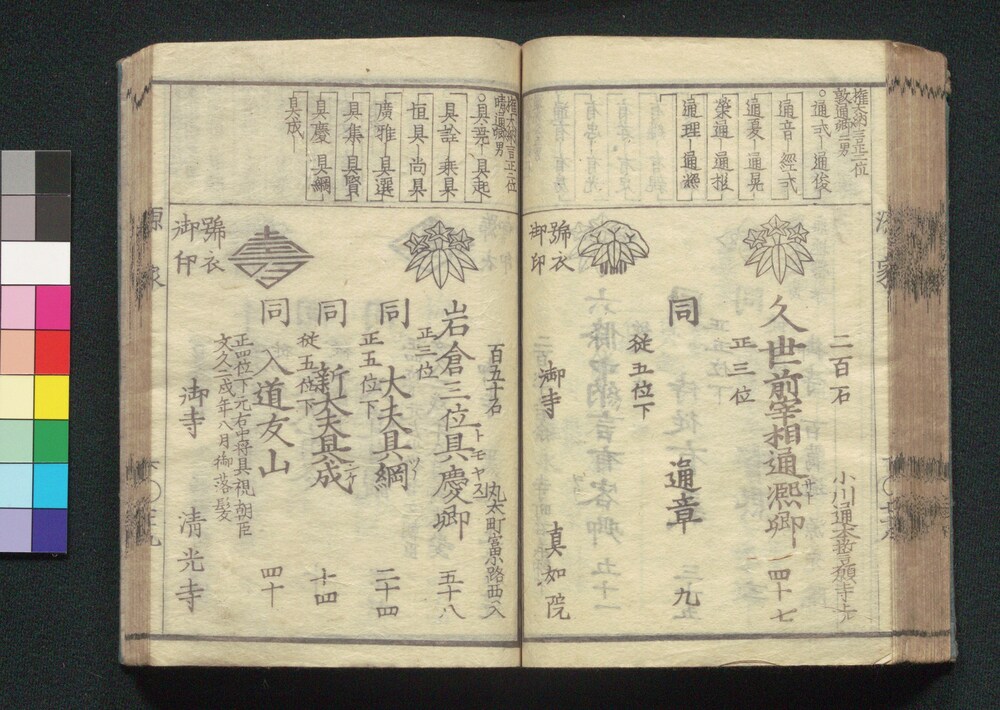 権大納言正二位
敦通卿二男
通式 通俊
通音 経式
通夏 通晃
栄通 通根
通理 通凞
二百石
小川通本誓願寺上
久世前宰相通凞卿 四十七
正三位
同 通章 三九
従五位下
御寺 真如院
號衣
御印
権大納言正二位
晴通卿男
具堯 具起
具詮 乗具
恒具 尚具
廣雅 具選
具集 具賢
具慶 具綱
具成
百五十石
丸太町富小路西入
岩倉三位具慶卿 五十八
トモヤス
正三位
同 大夫具綱 二十四
正五位下
同 新大夫具成 十四
従五位下
同 入道友山 四十
正四位下元右中将具視朝臣
文久二戌年八月御落髪
號衣
御印
御寺 清光寺
源
家